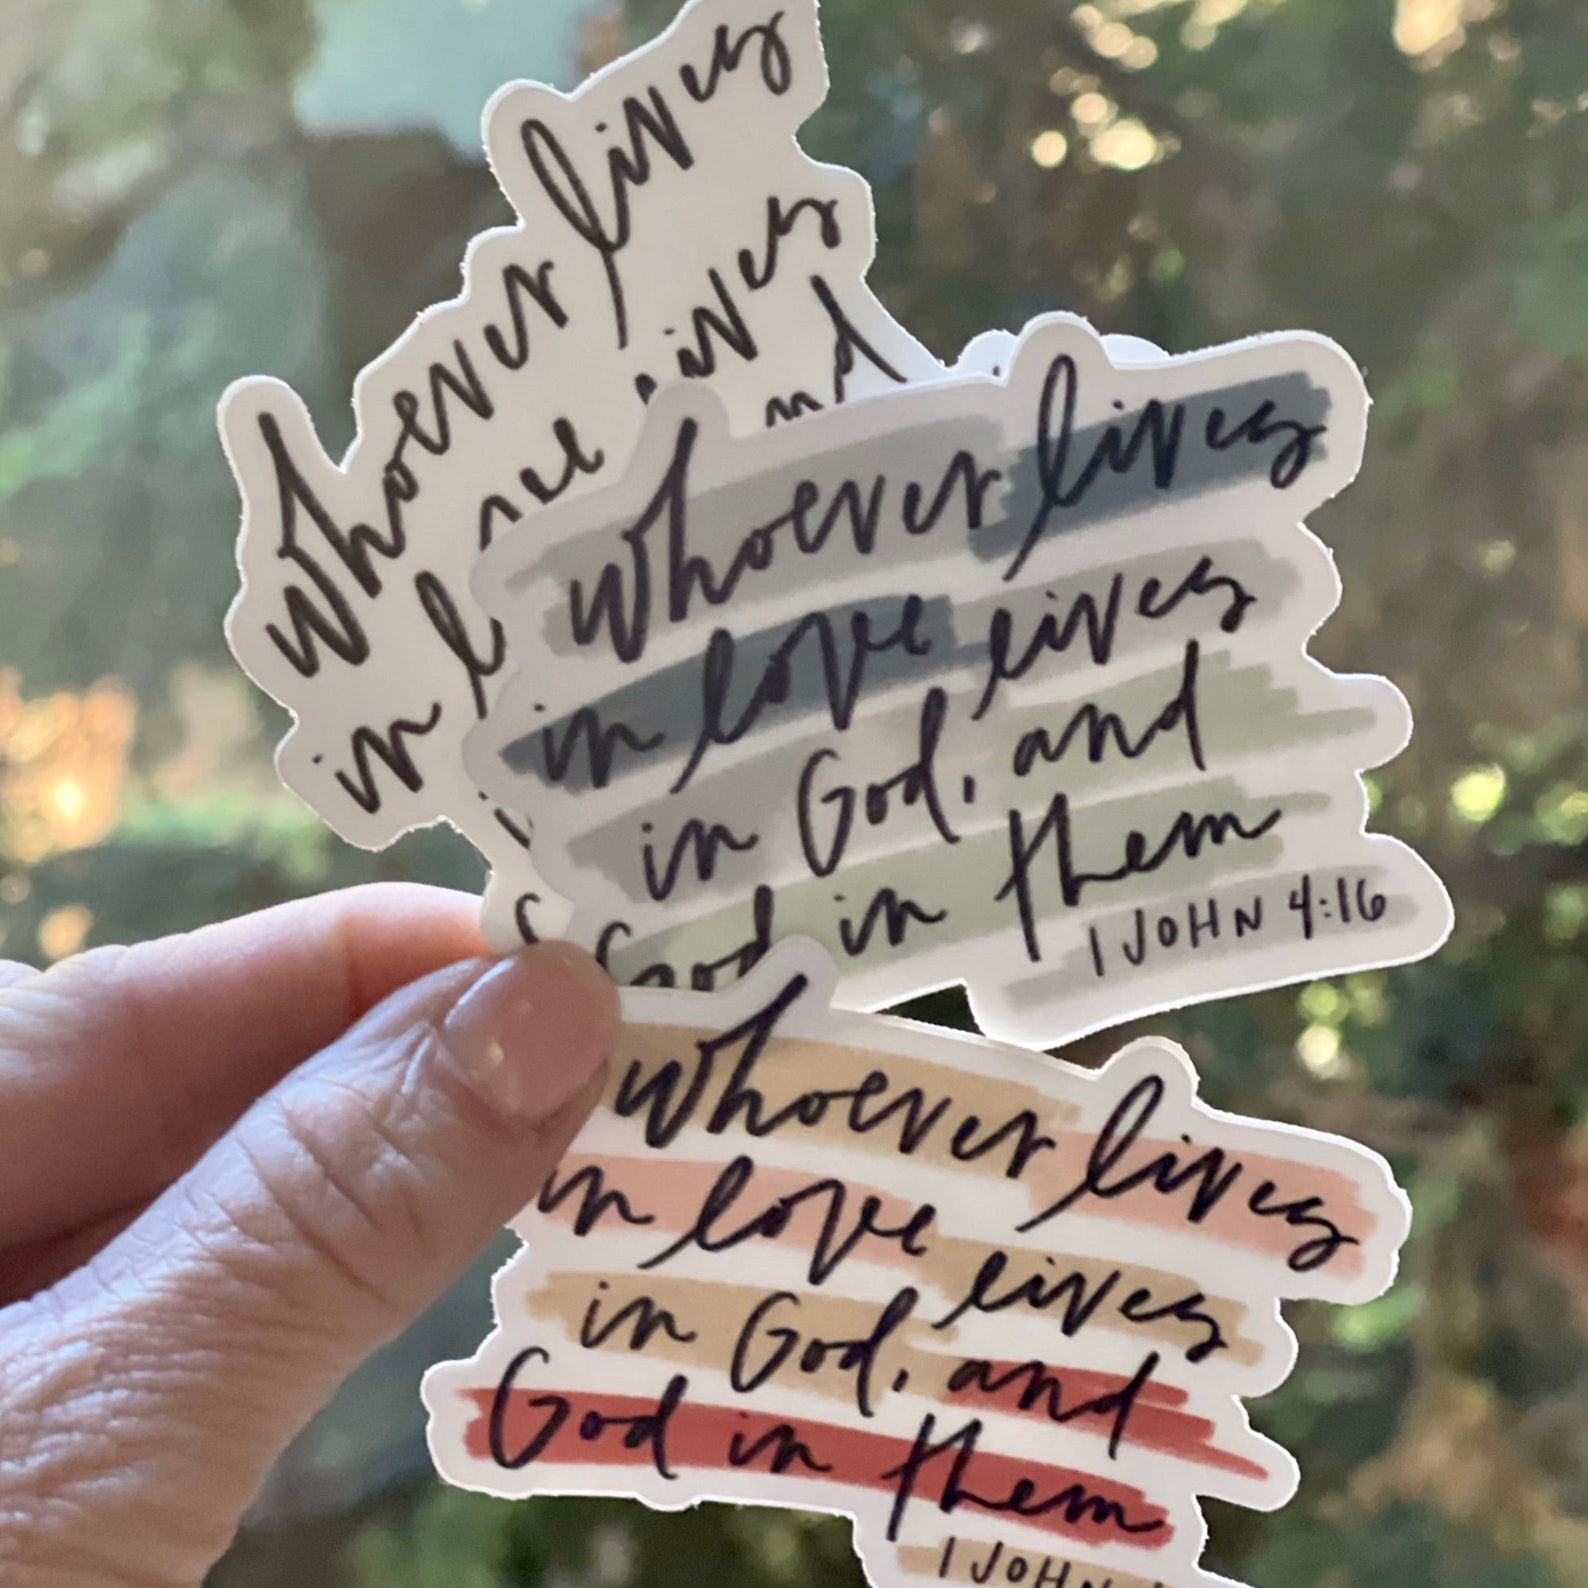 whoever lives
lives
nd
in l
whoever lives
in love lives
in God, and
God in them
1 JOHN 4:16
whoever lives
in love lives
in God, and
God in them
1 JOHN